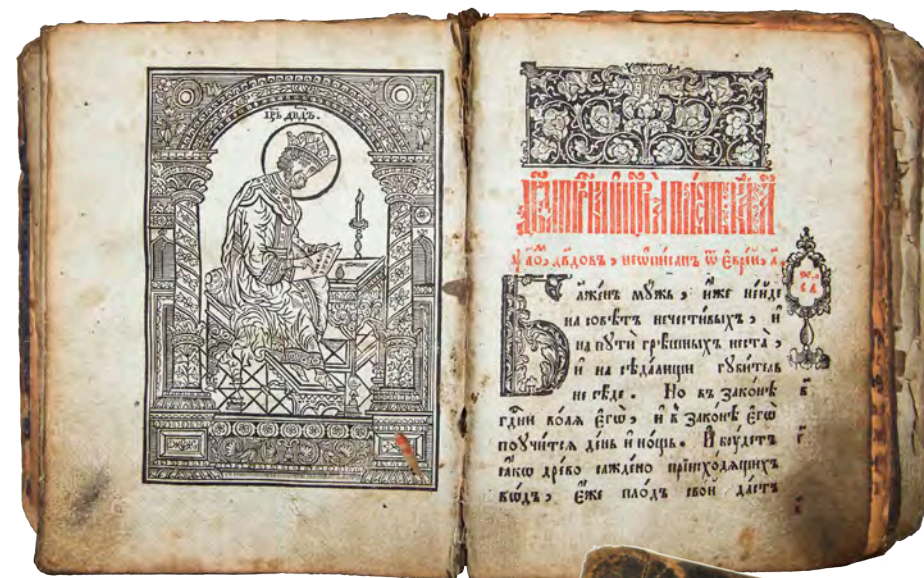 ЦРЬ ДВДЪ.
ѱало́, дв҃довъ, неѡпи́санъ ѿ Єврє́й, а҃
Бл҃же́нъ мꙋжъ, и҆́же не и҆́де
на совѣ́тъ нечести́выхъ, и҆
на пꙋти̑ грѣ́шныхъ неста̀,
и҆ на сѣда́лищи гꙋби́тель
не сѣ́де. Но въ зако́нѣ
гд҇ни во́лѧ є҆гѡ̀, и҆ в зако́нѣ є҆гѡ̀
поꙋчи́тсѧ де́нь и҆ но́щь. И҆ бꙋ́детъ
ꙗ҆́кѡ дре́во сажде́но при и҆схо́дѧщихъ
во́дъ, є҆́же пло́дъ сво́й да́стъ
в҃
г҃